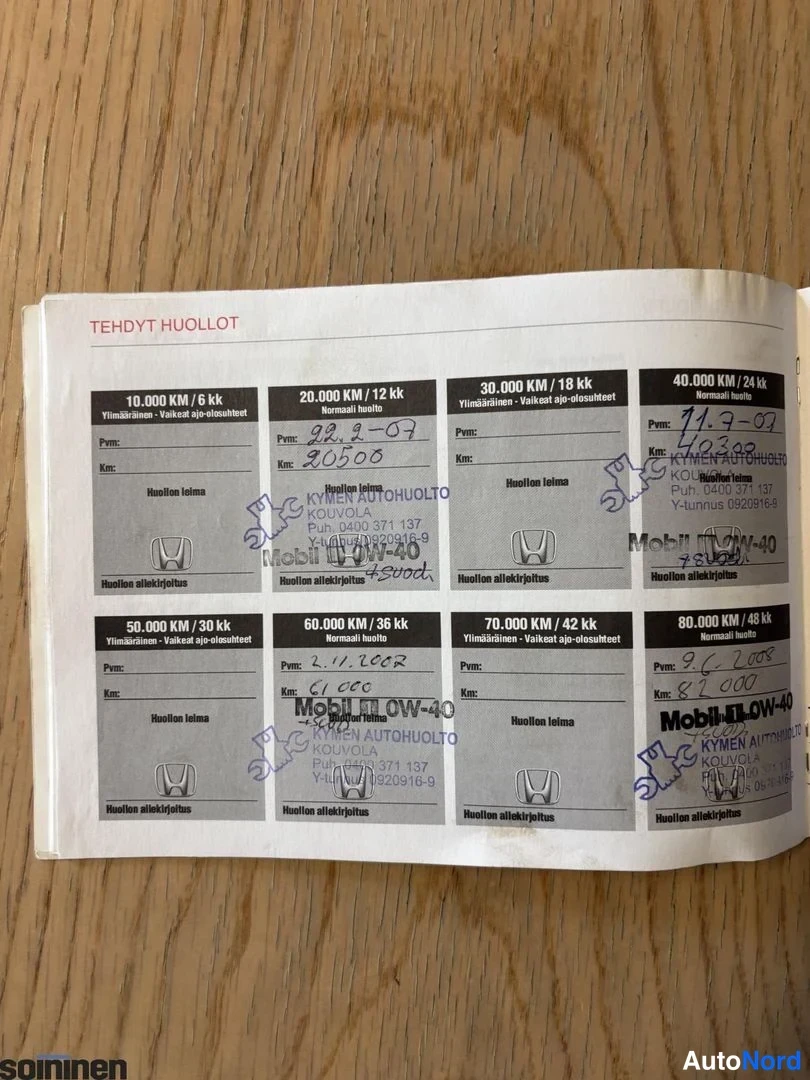 TEHDYT HUOLLOT
10.000 KM / 6 kk
Ylimääräinen - Vaikeat ajo-olosuhteet
Pvm:
Km:
Huollon leima
Huollon allekirjoitus
20.000 KM / 12 kk
Normaali huolto
Pvm: 22.2-07
Km: 20500
Huollon leima
KYMEN AUTOHUOLTO
KOUVOLA
Puh. 0400 371 137
Y-tunnus 0920916-9
Mobil 1 0W-40
+suod.
Huollon allekirjoitus
30.000 KM / 18 kk
Ylimääräinen - Vaikeat ajo-olosuhteet
Pvm:
Km:
Huollon leima
Huollon allekirjoitus
40.000 KM / 24 kk
Normaali huolto
Pvm: 11.7-07
Km: 40300
Huollon leima
KYMEN AUTOHUOLTO
KOUVOLA
Puh. 0400 371 137
Y-tunnus 0920916-9
Mobil 1 0W-40
+suod.
Huollon allekirjoitus
50.000 KM / 30 kk
Ylimääräinen - Vaikeat ajo-olosuhteet
Pvm:
Km:
Huollon leima
Huollon allekirjoitus
60.000 KM / 36 kk
Normaali huolto
Pvm: 2.11.2007
Km: 61 000
Mobil 1 0W-40
Huollon leima
+suod.
KYMEN AUTOHUOLTO
KOUVOLA
Puh. 0400 371 137
Y-tunnus 0920916-9
Huollon allekirjoitus
70.000 KM / 42 kk
Ylimääräinen - Vaikeat ajo-olosuhteet
Pvm:
Km:
Huollon leima
Huollon allekirjoitus
80.000 KM / 48 kk
Normaali huolto
Pvm: 9.6.2008
Km: 82 000
Mobil 1 0W-40
+suod.
KYMEN AUTOHUOLTO
KOUVOLA
Huollon allekirjoitus
soininen
AutoNord